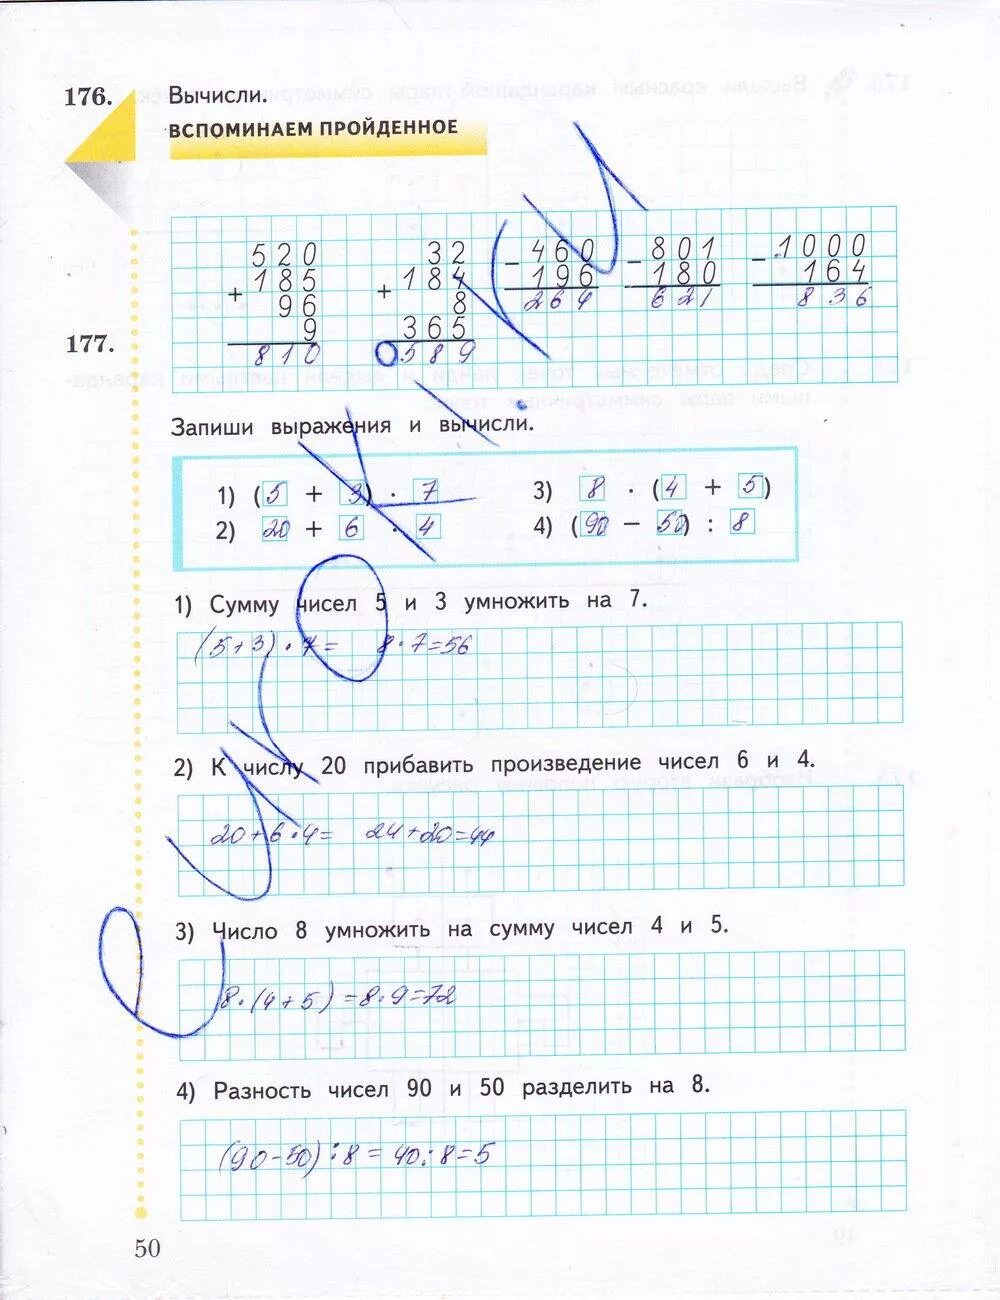 176. Вычисли.
ВСПОМИНАЕМ ПРОЙДЕННОЕ
520 32 -460 -801 -1000
+ 185 + 184 196 180 164
96 8 264 621 836
9 365
810 589
177.
Запиши выражения и вычисли.
1) (5 + 3) · 7 3) 8 · (4 + 5)
2) 20 + 6 · 4 4) (90 − 50) : 8
1) Сумму чисел 5 и 3 умножить на 7.
(5+3)·7= 8·7=56
2) К числу 20 прибавить произведение чисел 6 и 4.
20+6·4= 24+20=44
3) Число 8 умножить на сумму чисел 4 и 5.
8·(4+5)=8·9=72
4) Разность чисел 90 и 50 разделить на 8.
(90-50):8=40:8=5
50